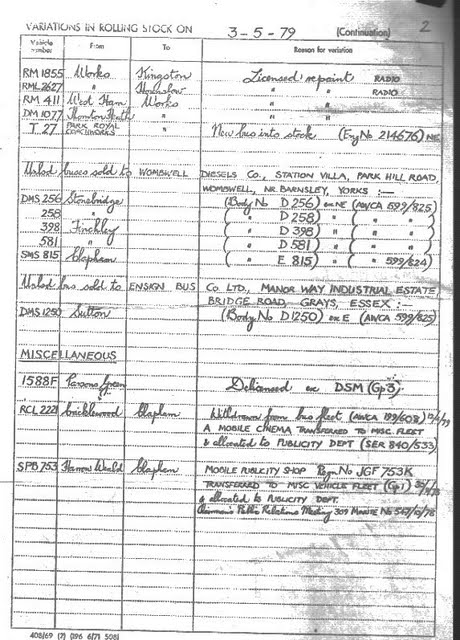 VARIATIONS IN ROLLING STOCK ON 3-5-79 (Continuation) 2
Vehicle number From To Reason for variation
RM 1855 Works Kingston Licensed: repaint RADIO
RML 2627 " Hounslow " " RADIO
RM 411 West Ham Works " "
DM 1077 Thornton Heath " " "
T 27 PARK ROYAL COACHWORKS " New bus into stock (Eng No 214676) NE
Unlicd buses sold to WOMBWELL DIESELS Co., STATION VILLA, PARK HILL ROAD,
WOMBWELL, NR. BARNSLEY, YORKS :-
DMS 256 Stonebridge (Body No D 256) ex NE (AWCA 599/825)
258 " ( " D 258) " ( " )
398 Finchley ( " D 398) " ( " )
581 " ( " D 581) " ( " )
SMS 815 Clapham ( " E 815) " ( " 599/824)
Unlicd bus sold to ENSIGN BUS Co LTD., MANOR WAY INDUSTRIAL ESTATE
BRIDGE ROAD, GRAYS, ESSEX :-
DMS 1250 Sutton (Body No D1250) ex E (AWCA 599/825)
MISCELLANEOUS
1588F Parsons Green Delicensed ex DSM (Gp 3)
RCL 2221 Cricklewood Clapham Withdrawn from bus fleet (AWCA 599/608)
A MOBILE CINEMA TRANSFERRED TO MISC. FLEET
& allocated to PUBLICITY DEPT (SER 840/533)
SPB 753 Harrow Weald Clapham MOBILE PUBLICITY SHOP Regn No JGF 753K
TRANSFERRED TO MISC VEHICLE FLEET (Gp 1)
& allocated to PUBLICITY DEPT.
Chairman's Public Relations Meeting 309 MINUTE No
408/69 (7) (396 6/71 508)